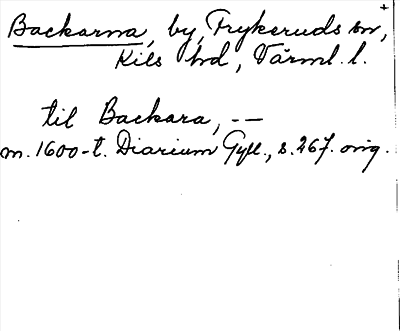 Backarna, by, Frykeruds sn,
Kils hd, Värml. l.
til Backara, --
m. 1600-t. Diarium Gyll., s. 267. orig.